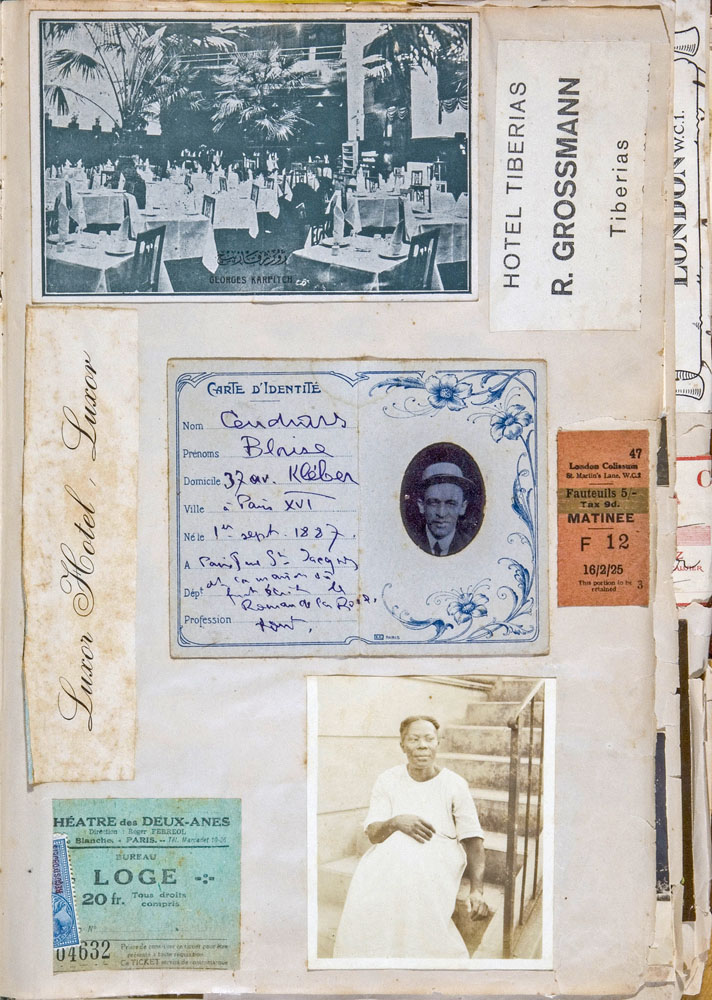 GEORGES KARPITCH
HOTEL TIBERIAS
R. GROSSMANN
Tiberias
LONDON W.C.1.
Luxor Hotel, Luxor
CARTE D'IDENTITÉ
Nom Cendrars
Prénoms Blaise
Domicile 37 av. Kléber
Ville à Paris XVI
Né le 1er sept. 1887.
A Paris rue St Jacques
et la maison où
Dépt fut écrit le
Roman de la Rose,
Profession
PARIS
47
London Coliseum
St. Martin's Lane, W.C.2
Fauteuils 5/-
Tax 9d.
MATINEE
F 12
16/2/25
This portion to be
retained 3
HÉATRE des DEUX-ANES
Direction : Roger FERREOL
Blanche. - PARIS. -- Tél. Marcadet 10-26
BUREAU
LOGE -:-
20 fr. Tous droits
compris
N°
04632
Ce TICKET